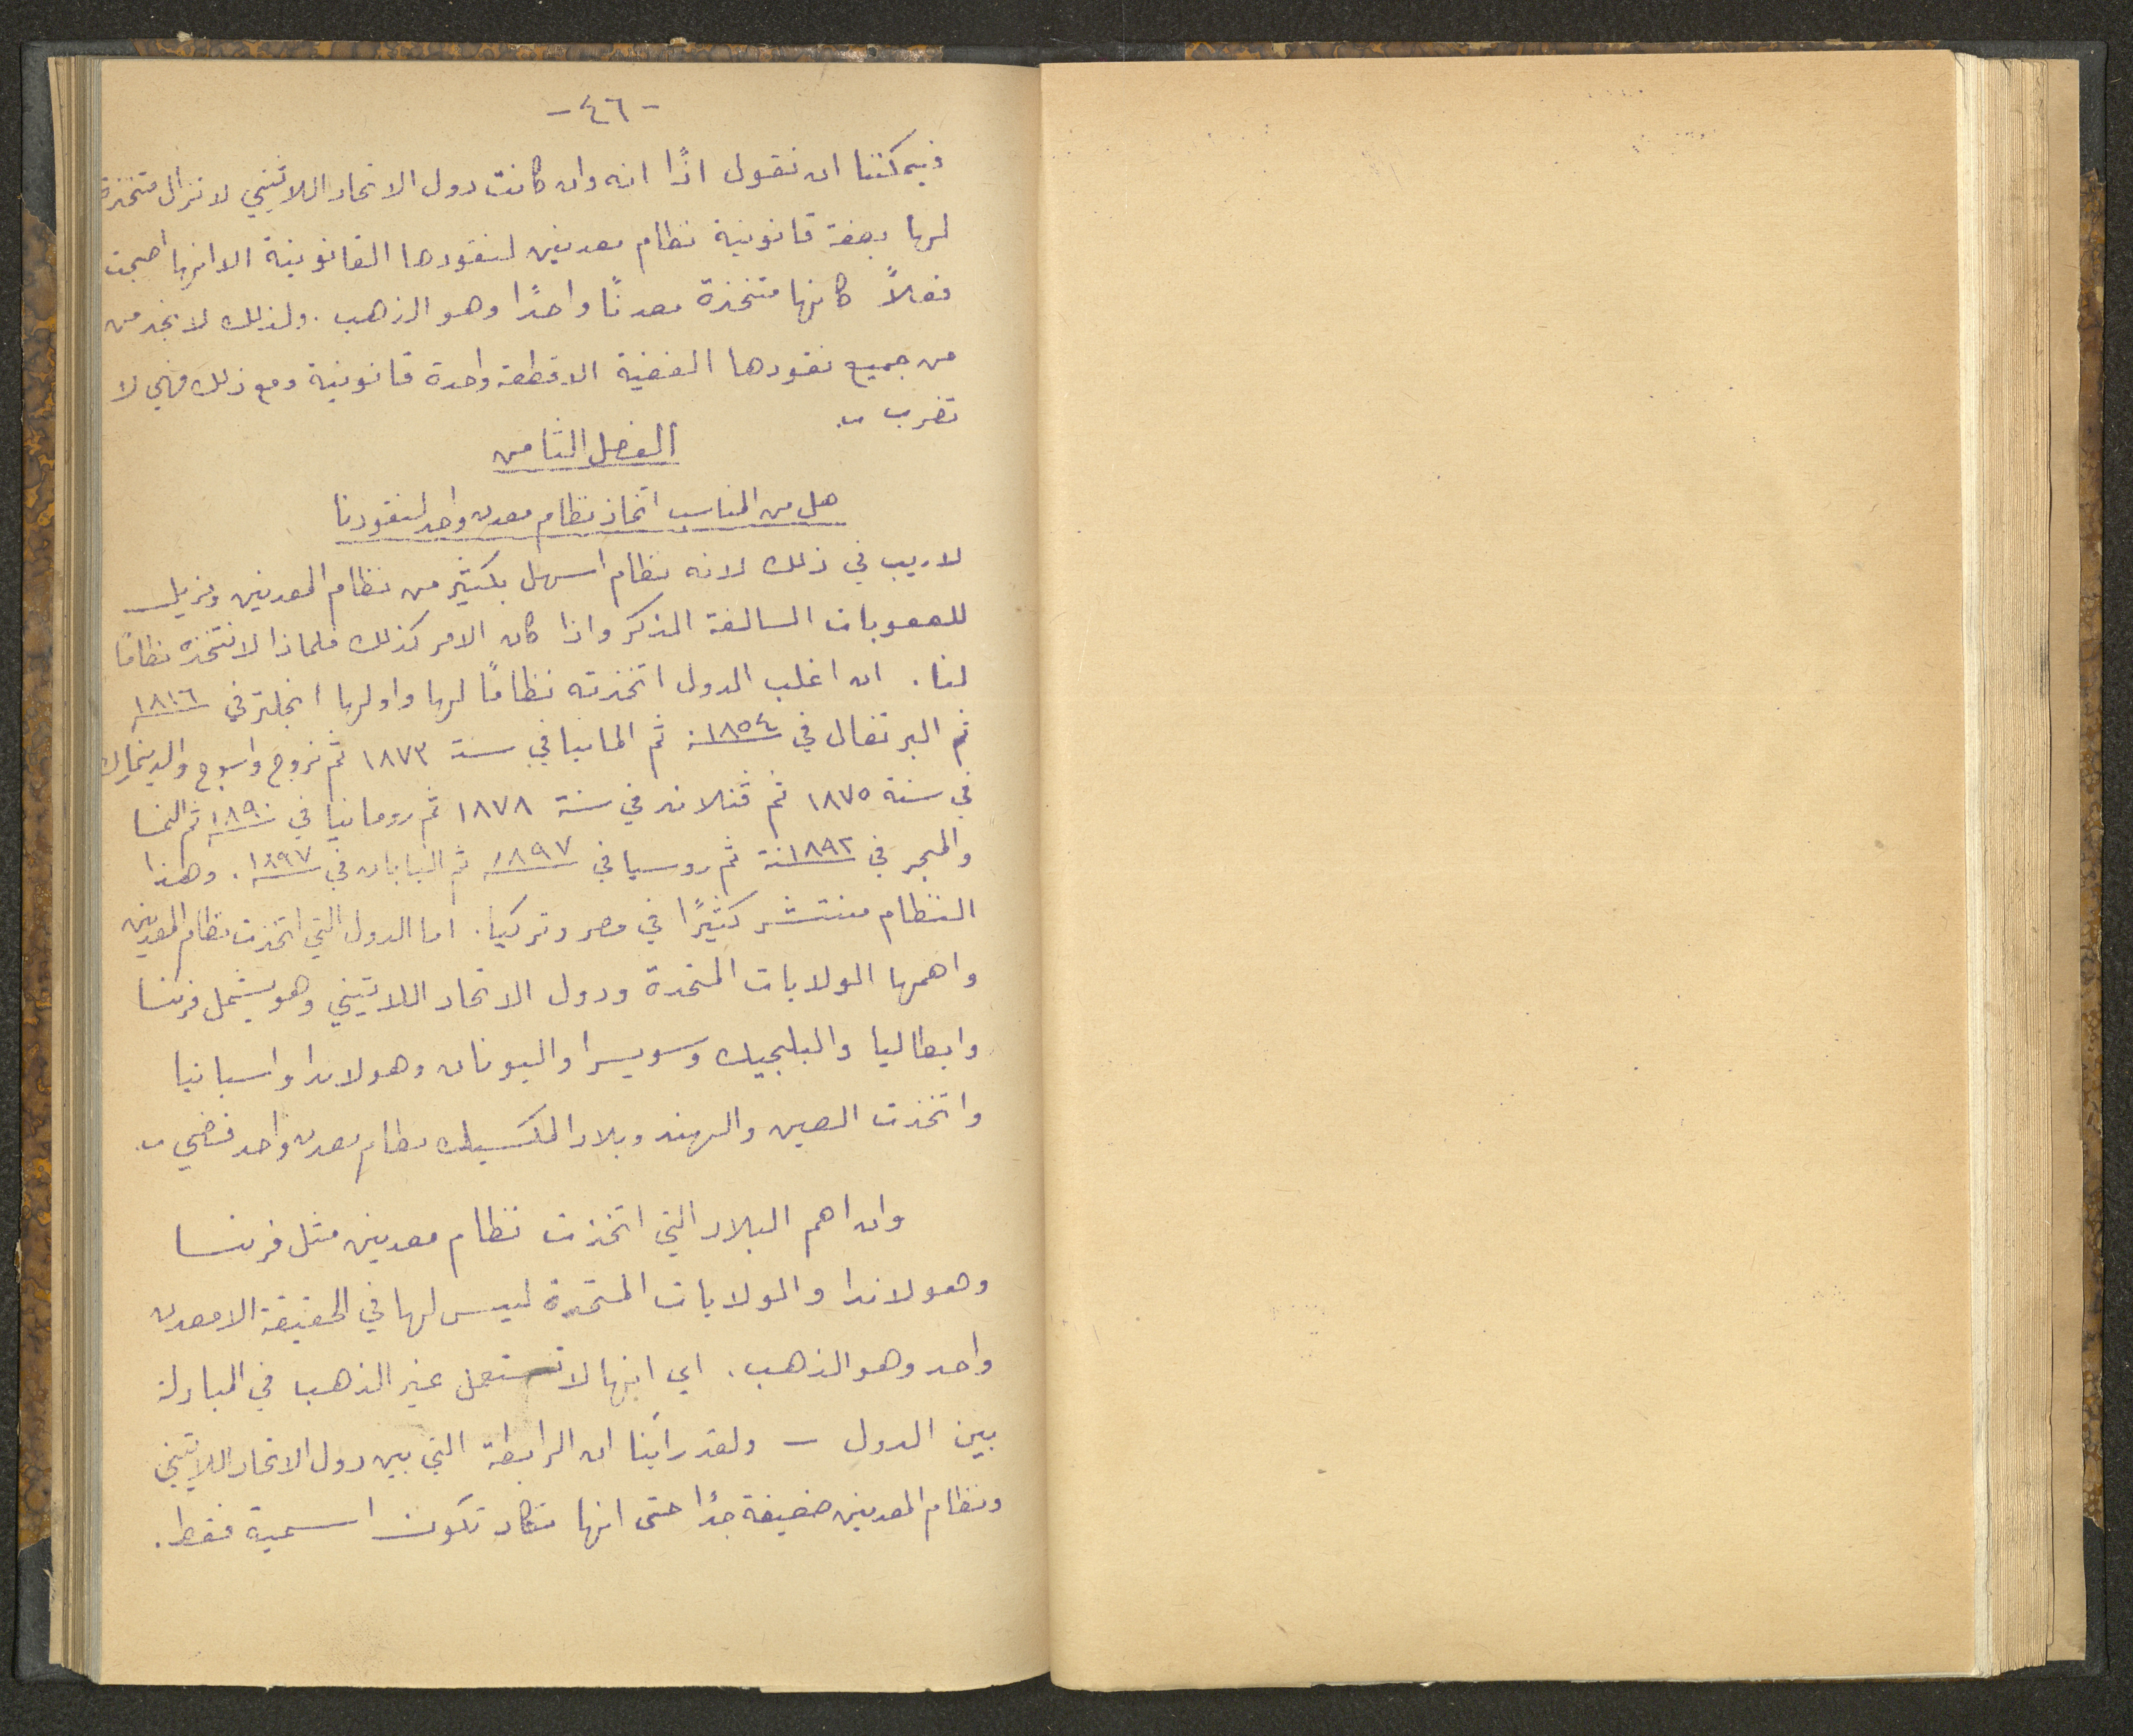 - ٤٦ -
فيمكننا ان نقول اذًا انه وان كانت دول الاتحاد اللاتيني لا تزال متخذة
لها بصفة قانونية نظام معدنين لنقودها القانونية الا انها اصبحت
فعلاً كانها متخذة معدنًا واحدًا وهو الذهب. ولذلك لا نجد من
من جميع نقودها الفضية الا قطعة واحدة قانونية ومع ذلك فهي لا
تضرب
الفصل الثامن
هل من المناسب اتخاذ نظام معدن واحد لنقودنا
لا ريب في ذلك لانه نظام اسهل بكثير من نظام المعدنين ومزيل
للصعوبات السالفة الذكر واذا كان الامر كذلك فلماذا لا نتخذه نظامًا
لنا. ان اغلب الدول اتخذته نظامًا لها واولها انجلتر في ١٨١٦
ثم البرتغال في ١٨٥٤ ثم المانيا في سنة ١٨٧٣ ثم نروج واسوج والدينمارك
في سنة ١٨٧٥ ثم فنلاند في سنة ١٨٧٨ ثم رومانيا في ١٨٩٠ ثم النمسا
والمجر في ١٨٩٢ ثم روسيا في ١٨٩٧ ثم اليابان في ١٨٩٧. وهذا
النظام منتشر كثيرًا في مصر وتركيا. اما الدول التي اتخذت نظام المعدنين
واهمها الولايات المتحدة ودول الاتحاد اللاتيني وهو يشمل فرنسا
وايطاليا والبلجيك وسويسرا واليونان وهولاندا واسبانيا
واتخذت الصين والهند وبلاد المكسيك نظام معدن واحد فضي
وان اهم البلاد التي اتخذت نظام معدنين مثل فرنسا
وهولاندا والولايات المتحدة ليس لها في الحقيقة الا معدن
واحد وهو الذهب. اي انها لا تستعمل غير الذهب في المبادلة
بين الدول – ولقد رأينا ان الرابطة التي بين دول الاتحاد اللاتيني
ونظام المعدنين ضعيفة جدًا حتى انها تكاد تكون اسمية فقط.